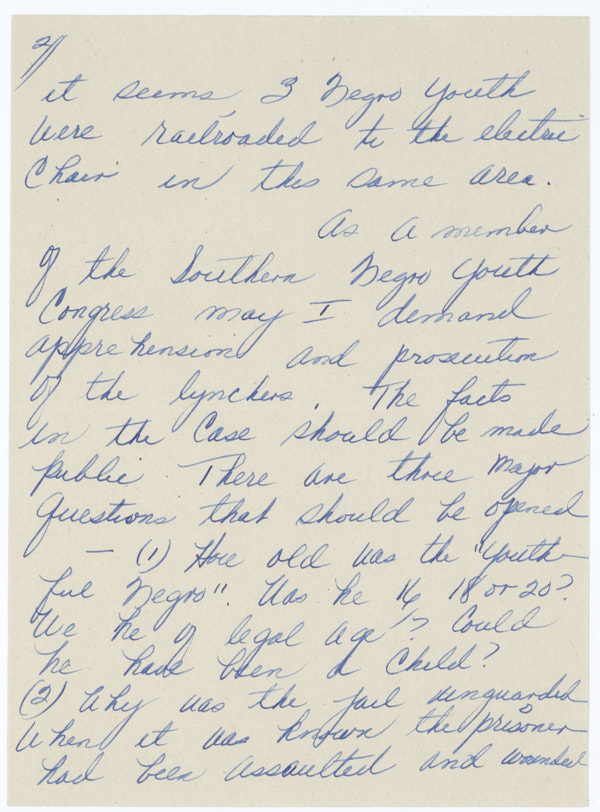 2/
it seems, 3 Negro Youth
were railroaded to the electric
Chair in this same area.
As a member
of the Southern Negro Youth
Congress may I demand
apprehension and prosecution
of the lynchers. The facts
in the Case should be made
public. There are three Major
Questions that should be opened
— (1) How old was the "Youth-
ful Negro". Was he 16 18 or 20?
We he of legal age? Could
he have been a Child?
(2) Why was the jail unguarded
When it was known the prisoner
had been assaulted and wounded